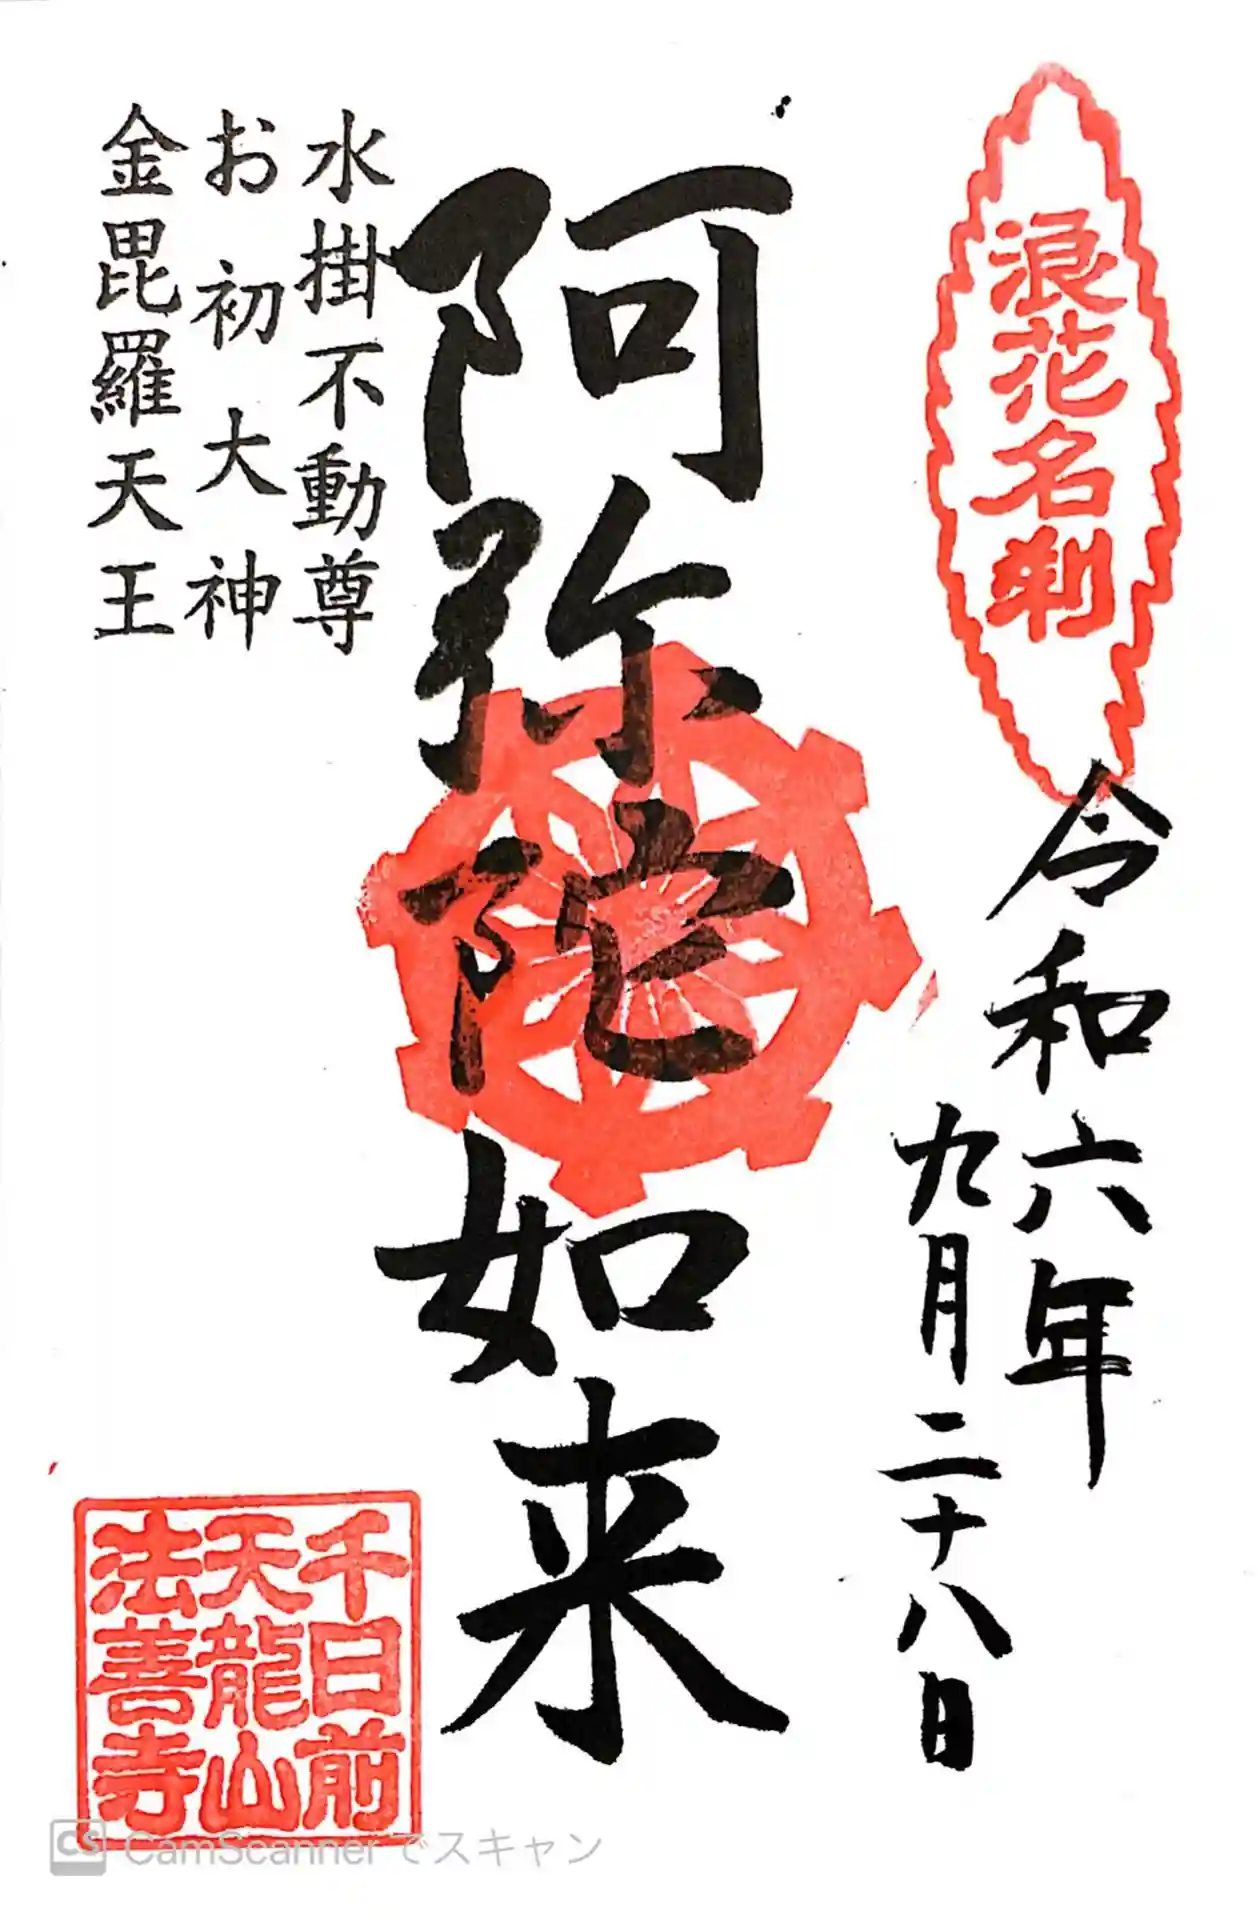 浪花名刹
令和六年
九月二十八日
阿弥陀如来
水掛不動尊
お初大神
金毘羅天王
千日前
天龍山
法善寺
CS CamScannerでスキャン